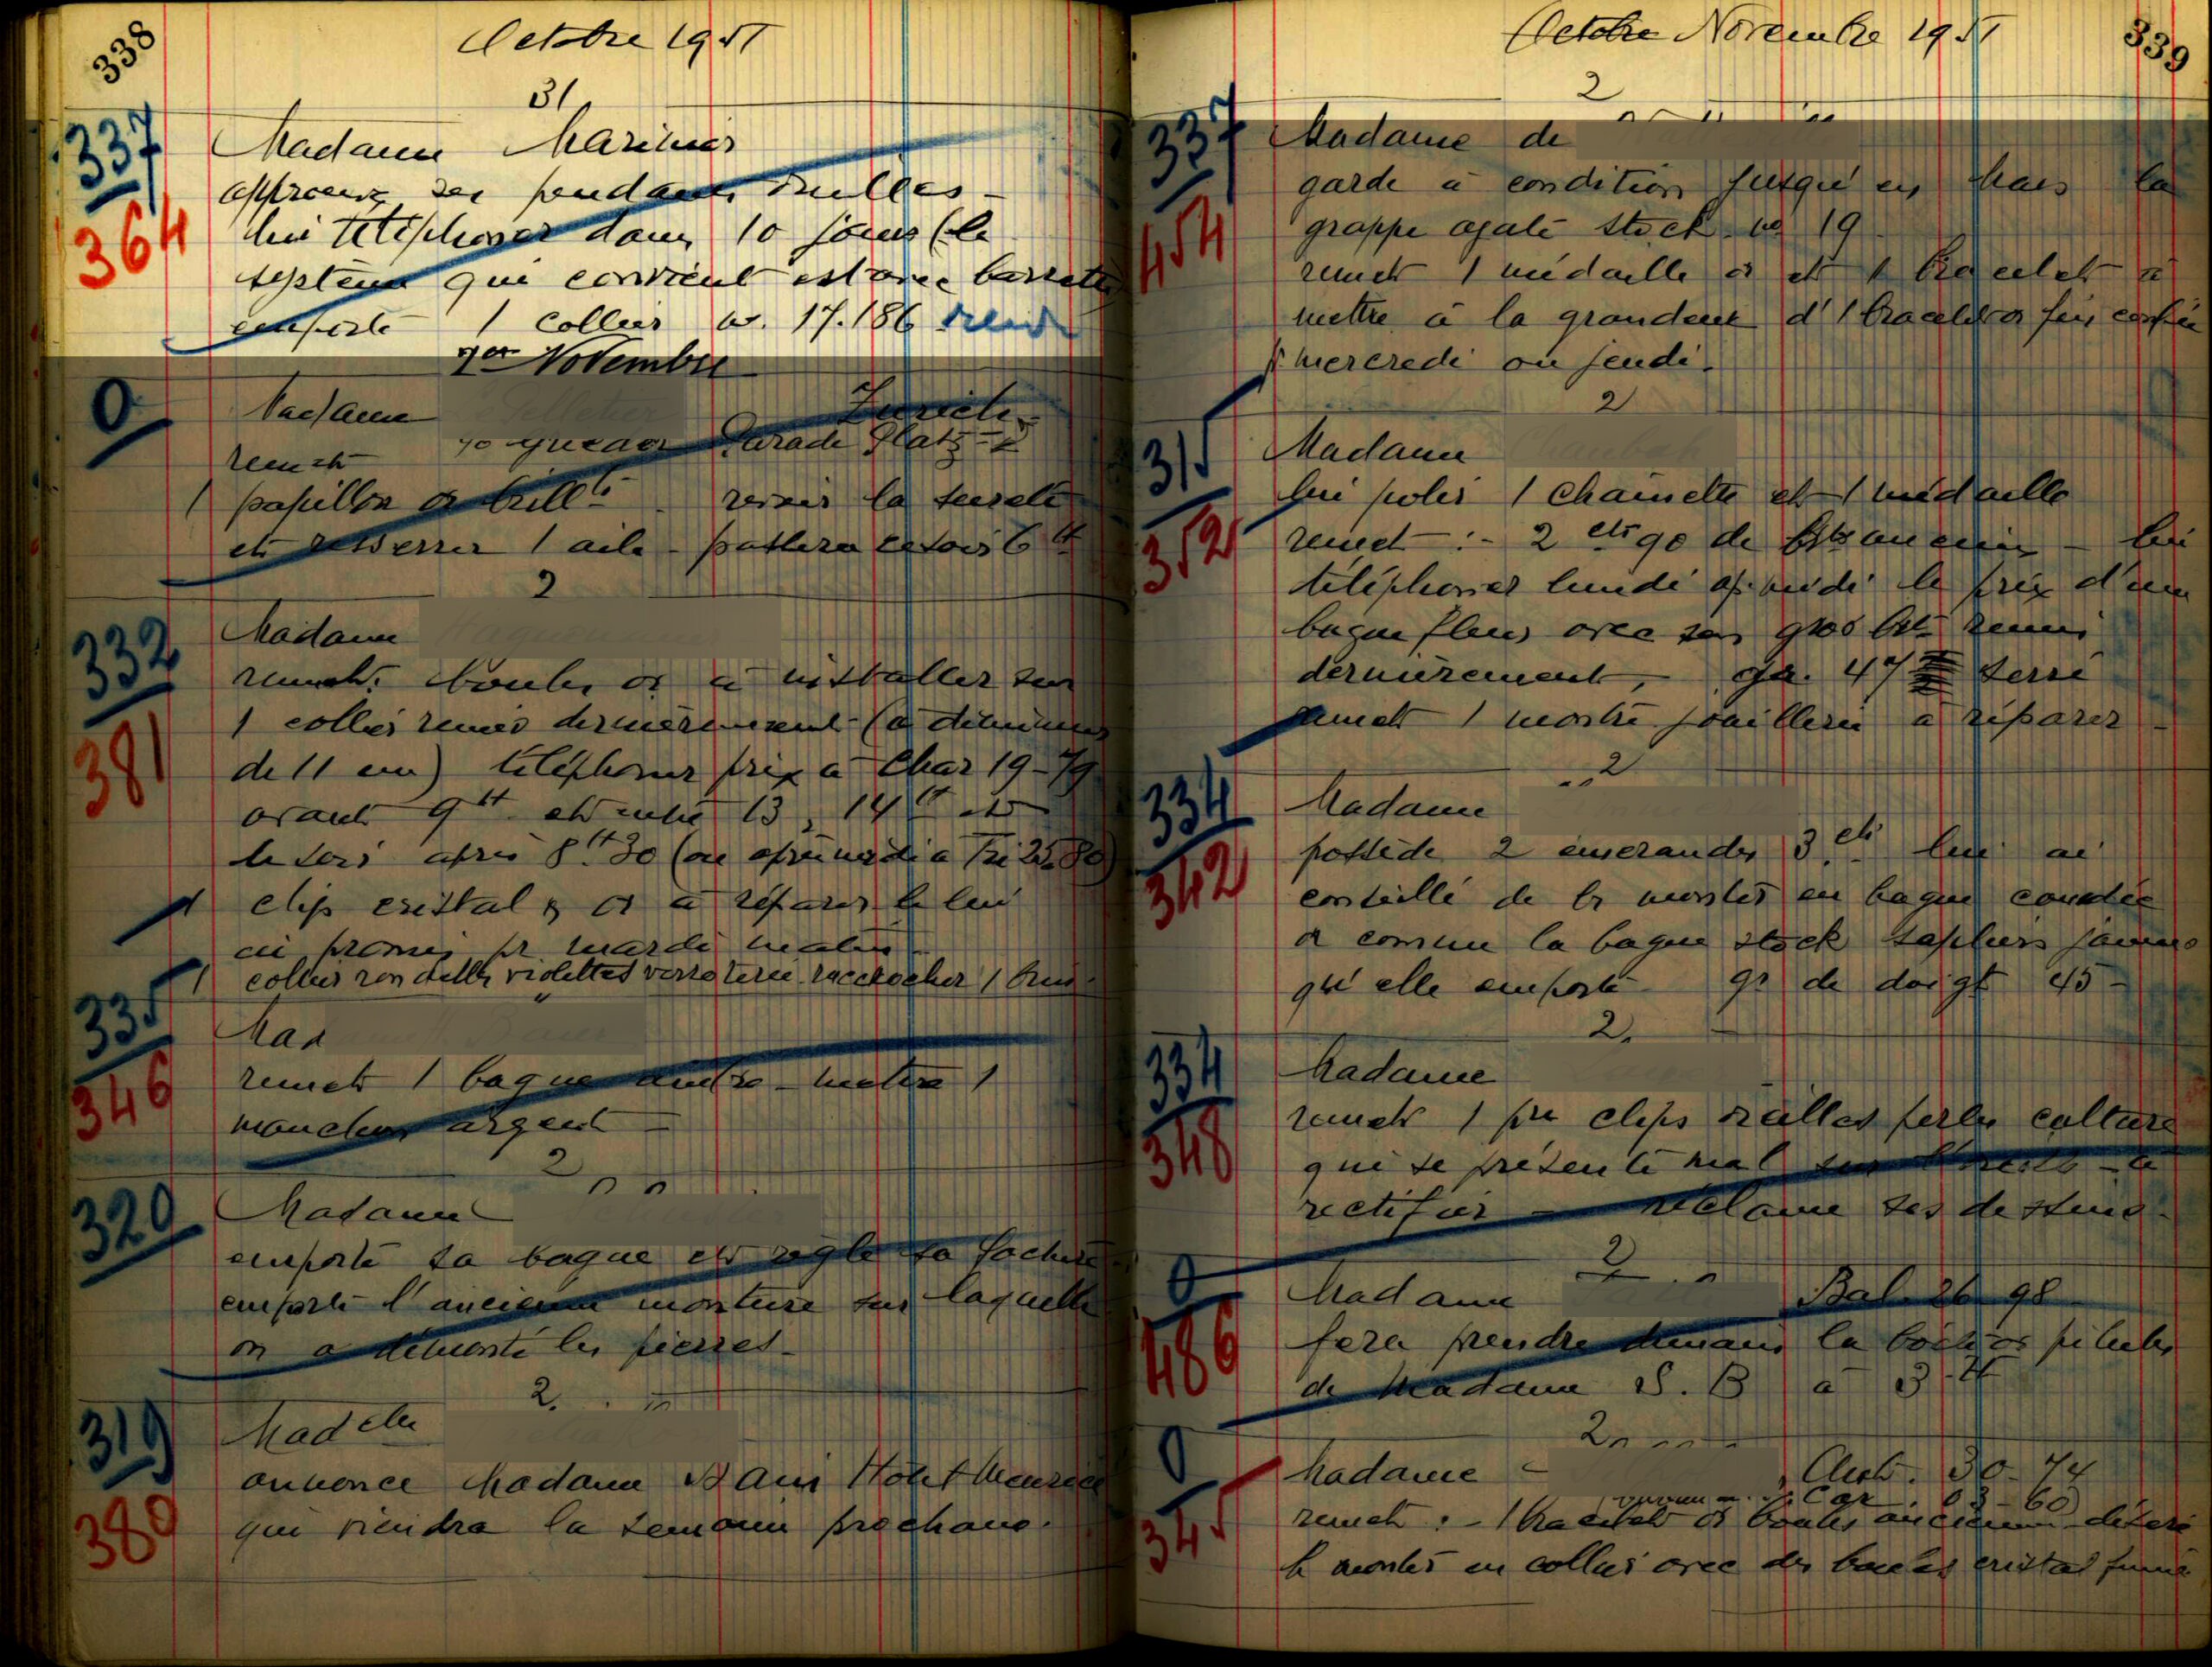 338
Octobre 1951
31
337
364
Madame Marinier
approuve ses pendants oreilles -
lui téléphoner dans 10 jours (le
système qui convient est avec barrette
emporte 1 collier no. 17.186 rendu
1er Novembre
0
Madame Zurich -
Parade Platz - 2
remet
1 papillon or brillts - revoir la sureté
et resserrer 1 aile - passera ce soir 6 H
2
332
381
Madame
remet: boules or à installer sur
1 collier remis dernièrement (à diminuer
de 11 cm) téléphoner prix à Char 19-79
avant 9H et entre 13, 14 H et
le soir après 8H30 (ou après midi à
1 clip cristal & or à réparer le lui
ai promis pr mardi matin -
1 collier rondelles violettes verroterie raccrocher 1 brin -
"
335
346
Mad
remet 1 bague - mettre 1
manchon argent -
2
320
Madame
emporte sa bague et règle sa facture
emporte l'ancienne monture sur laquelle
on a démonté les pierres -
2.
319
380
Madelle
annonce Madame Hôtel Meurice
qui viendra la semaine prochaine.
339
Octobre Novembre 1951
2
337
454
Madame de
garde à condition jusqu'en Mars la
grappe agate stock no 19
remet 1 médaille or et 1 bracelet à
mettre à la grandeur d'1 bracelet or fin confié
pr mercredi ou jeudi.
2
315
352
Madame
lui polir 1 chainette et 1 médaille
remet :- 2 cts 90 de Bts anciens - lui
téléphoner lundi ap. midi le prix d'une
bague fleur avec son gros Bt remis
dernièrement, - gr. 47 serré
remet 1 montre joaillerie à réparer -
2
334
342
Madame
possède 2 émeraudes 3 cts lui ai
conseillé de les monter en bague
or comme la bague stock saphirs jaunes
qu'elle emporte - gr de doigt 45 -
2.
334
348
Madame
remet 1 pre clips oreilles perles culture
qui se présente mal sur l'oreille - à
rectifier - réclame ses dessins -
2
0
486
Madame Bal. 26 98
fera prendre demain la boite or pilules
de Madame S. B à 3 H
2
0
345
Madame 30-74
Car. 03-60)
remet :- 1 bracelet or boules anciennes - désire
le monter en collier avec des boules cristal fumé